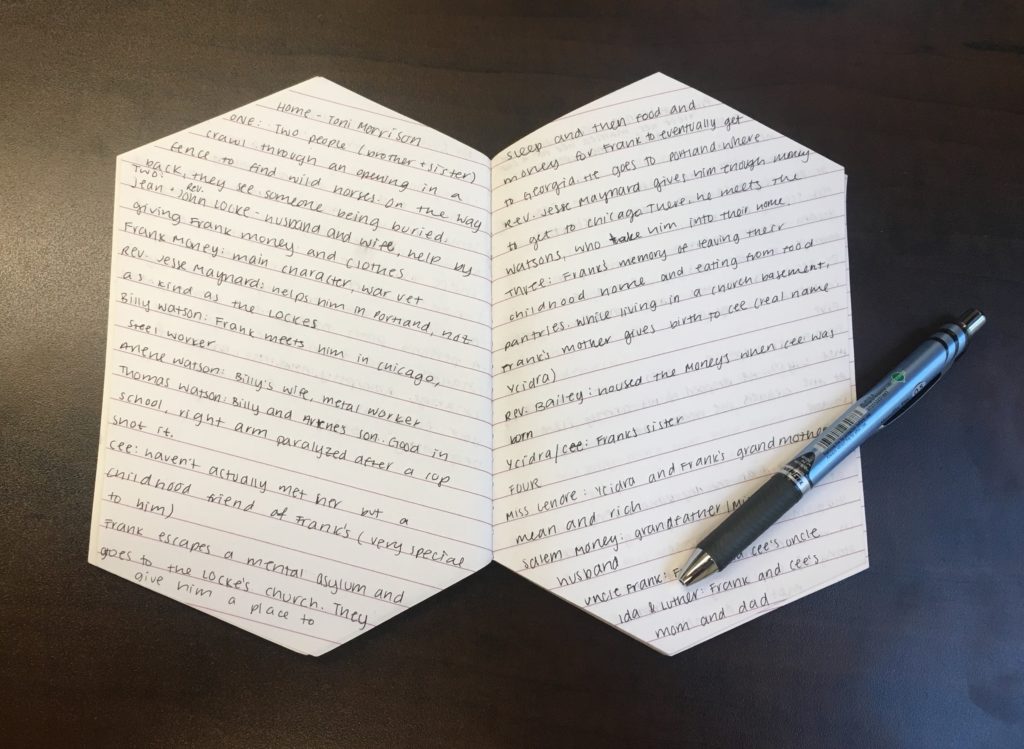 Home - Toni Morrison
ONE: Two people (brother + sister)
crawl through an opening in a
fence to find wild horses. On the way
back, they see someone being buried.
Two:
Jean + Rev. John Locke - husband and wife, help by
giving Frank money and clothes
Frank Money: main character, war vet
Rev. Jesse Maynard: helps him in Portland, not
as kind as the Lockes
Billy Watson: Frank meets him in Chicago,
steel worker
Arlene Watson: Billy's wife, metal worker
Thomas Watson: Billy and Arlenes son. Good in
school, right arm paralyzed after a cop
shot it.
Cee: haven't actually met her but a
childhood friend of Frank's (very special
to him)
Frank escapes a mental asylum and
goes to the Locke's church. They
give him a place to
sleep and then food and
money for Frank to eventually get
to Georgia. He goes to Portland where
Rev. Jesse Maynard gives him enough money
to get to Chicago There, he meets the
Watsons, who take him into their home.
Three: Frank's memory of leaving their
childhood home and eating from food
pantries. While living in a church basement,
Frank's mother gives birth to Cee (real name
Ycidra)
Rev. Bailey: housed the Moneys when Cee was
born
Ycidra/Cee: Frank's sister
FOUR
Miss Lenore: Ycidra and Frank's grandmother
mean and rich
Salem Money: grandfather
husband
Uncle Frank: Cee's uncle
Ida & Luther: Frank and Cee's
mom and dad